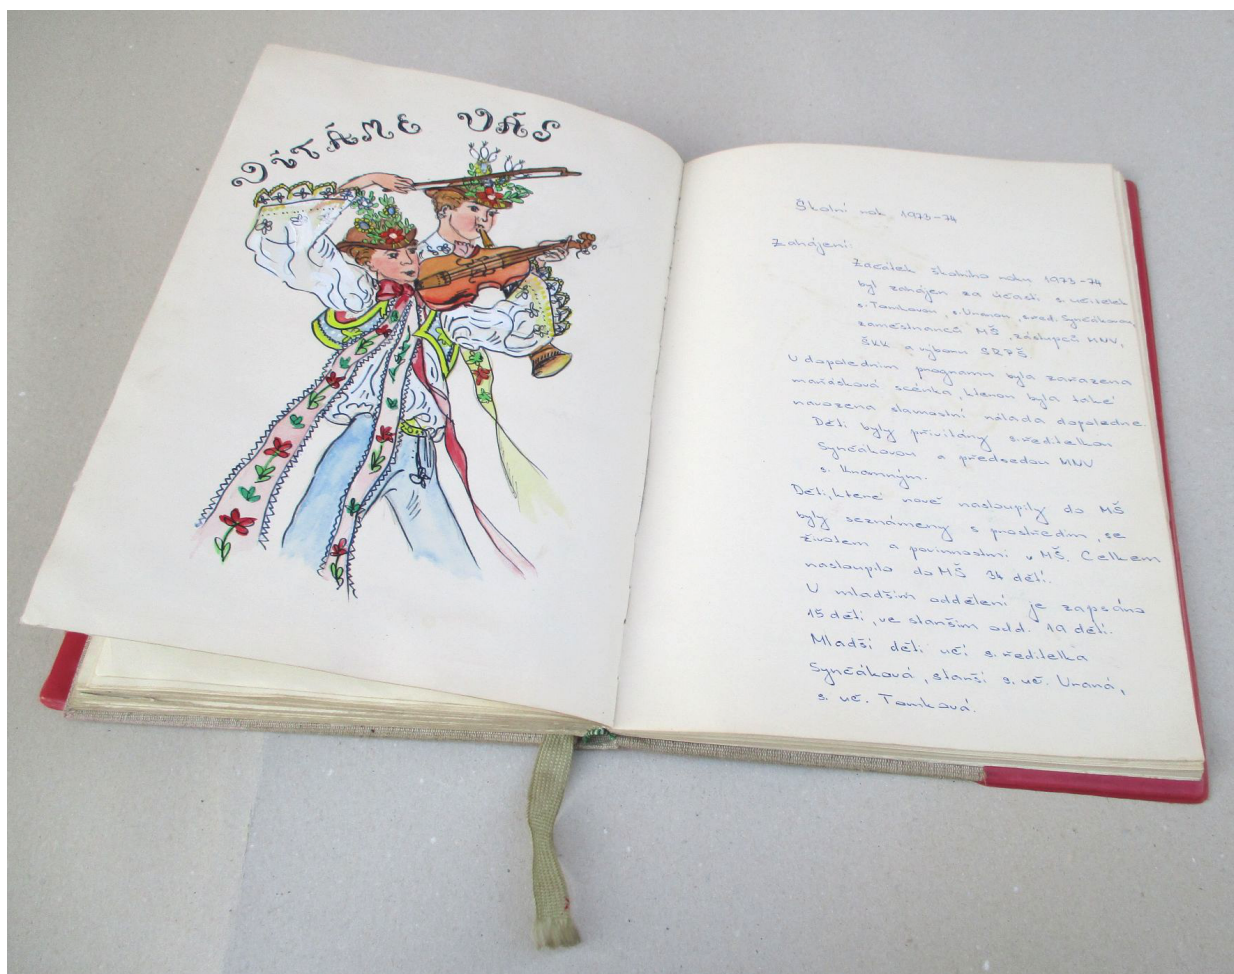 VÍTÁME VÁS
Školní rok 1973-74
Zahájení:
Začátek školního roku 1973-74
byl zahájen za účasti s. učitelek
s. Tomkovou, s. Vranou, s. řed. Synčákovou,
zaměstnanců MŠ, zástupců MNV,
ŠKK a výboru SRPŠ
V dopoledním programu byla zařazena
maňásková scénka, kterou byla také
navozena slavnostní nálada dopoledne.
Děti byly přivítány s. ředitelkou
Synčákovou a předsedou MNV
s.
Děti, které nově nastoupily do MŠ
byly seznámeny s prostředím, se
životem a povinnostmi v MŠ. Celkem
nastoupilo do MŠ 34 dětí.
V mladším oddělení je zapsáno
15 dětí, ve starším odd. 19 dětí.
Mladší děti učí s. ředitelka
Synčáková, starší s. uč. Vraná,
s. uč. Tomková.